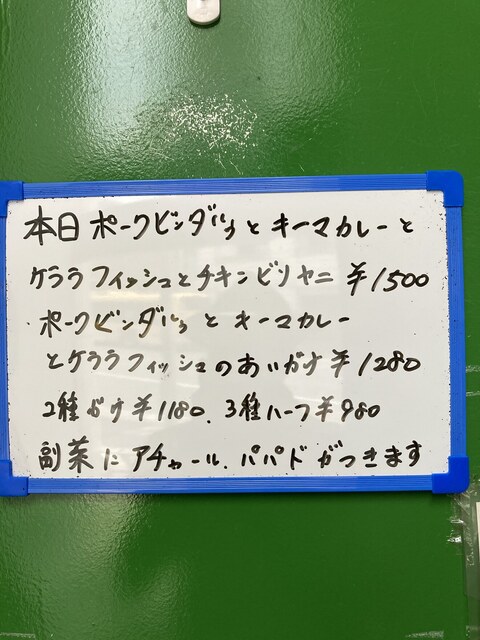 本日 ポークビンダルーと キーマカレーと
ケララフィッシュとチキンビリヤニ ¥1500
ポークビンダルー と キーマカレー
とケララフィッシュのあいがけ ¥1280
2種がけ¥1180、3種ハーフ¥980
副菜にアチャール、パパドがつきます